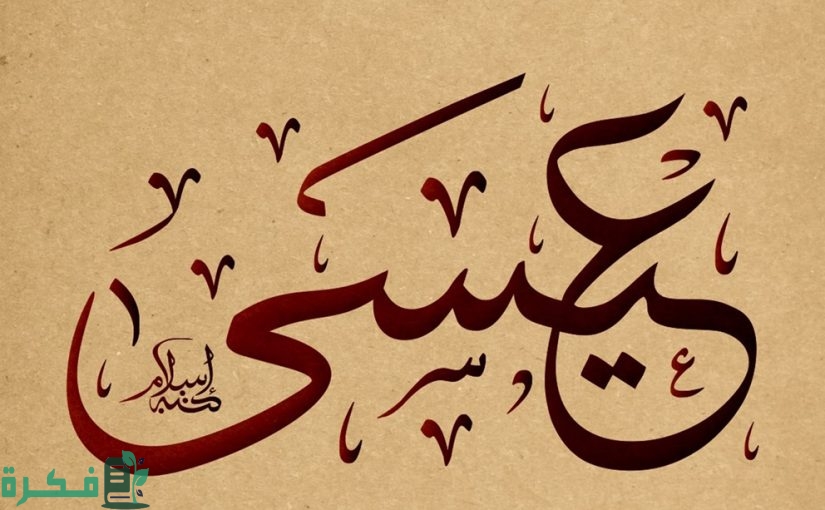 عيسى
كتبه إسلام
فكرة